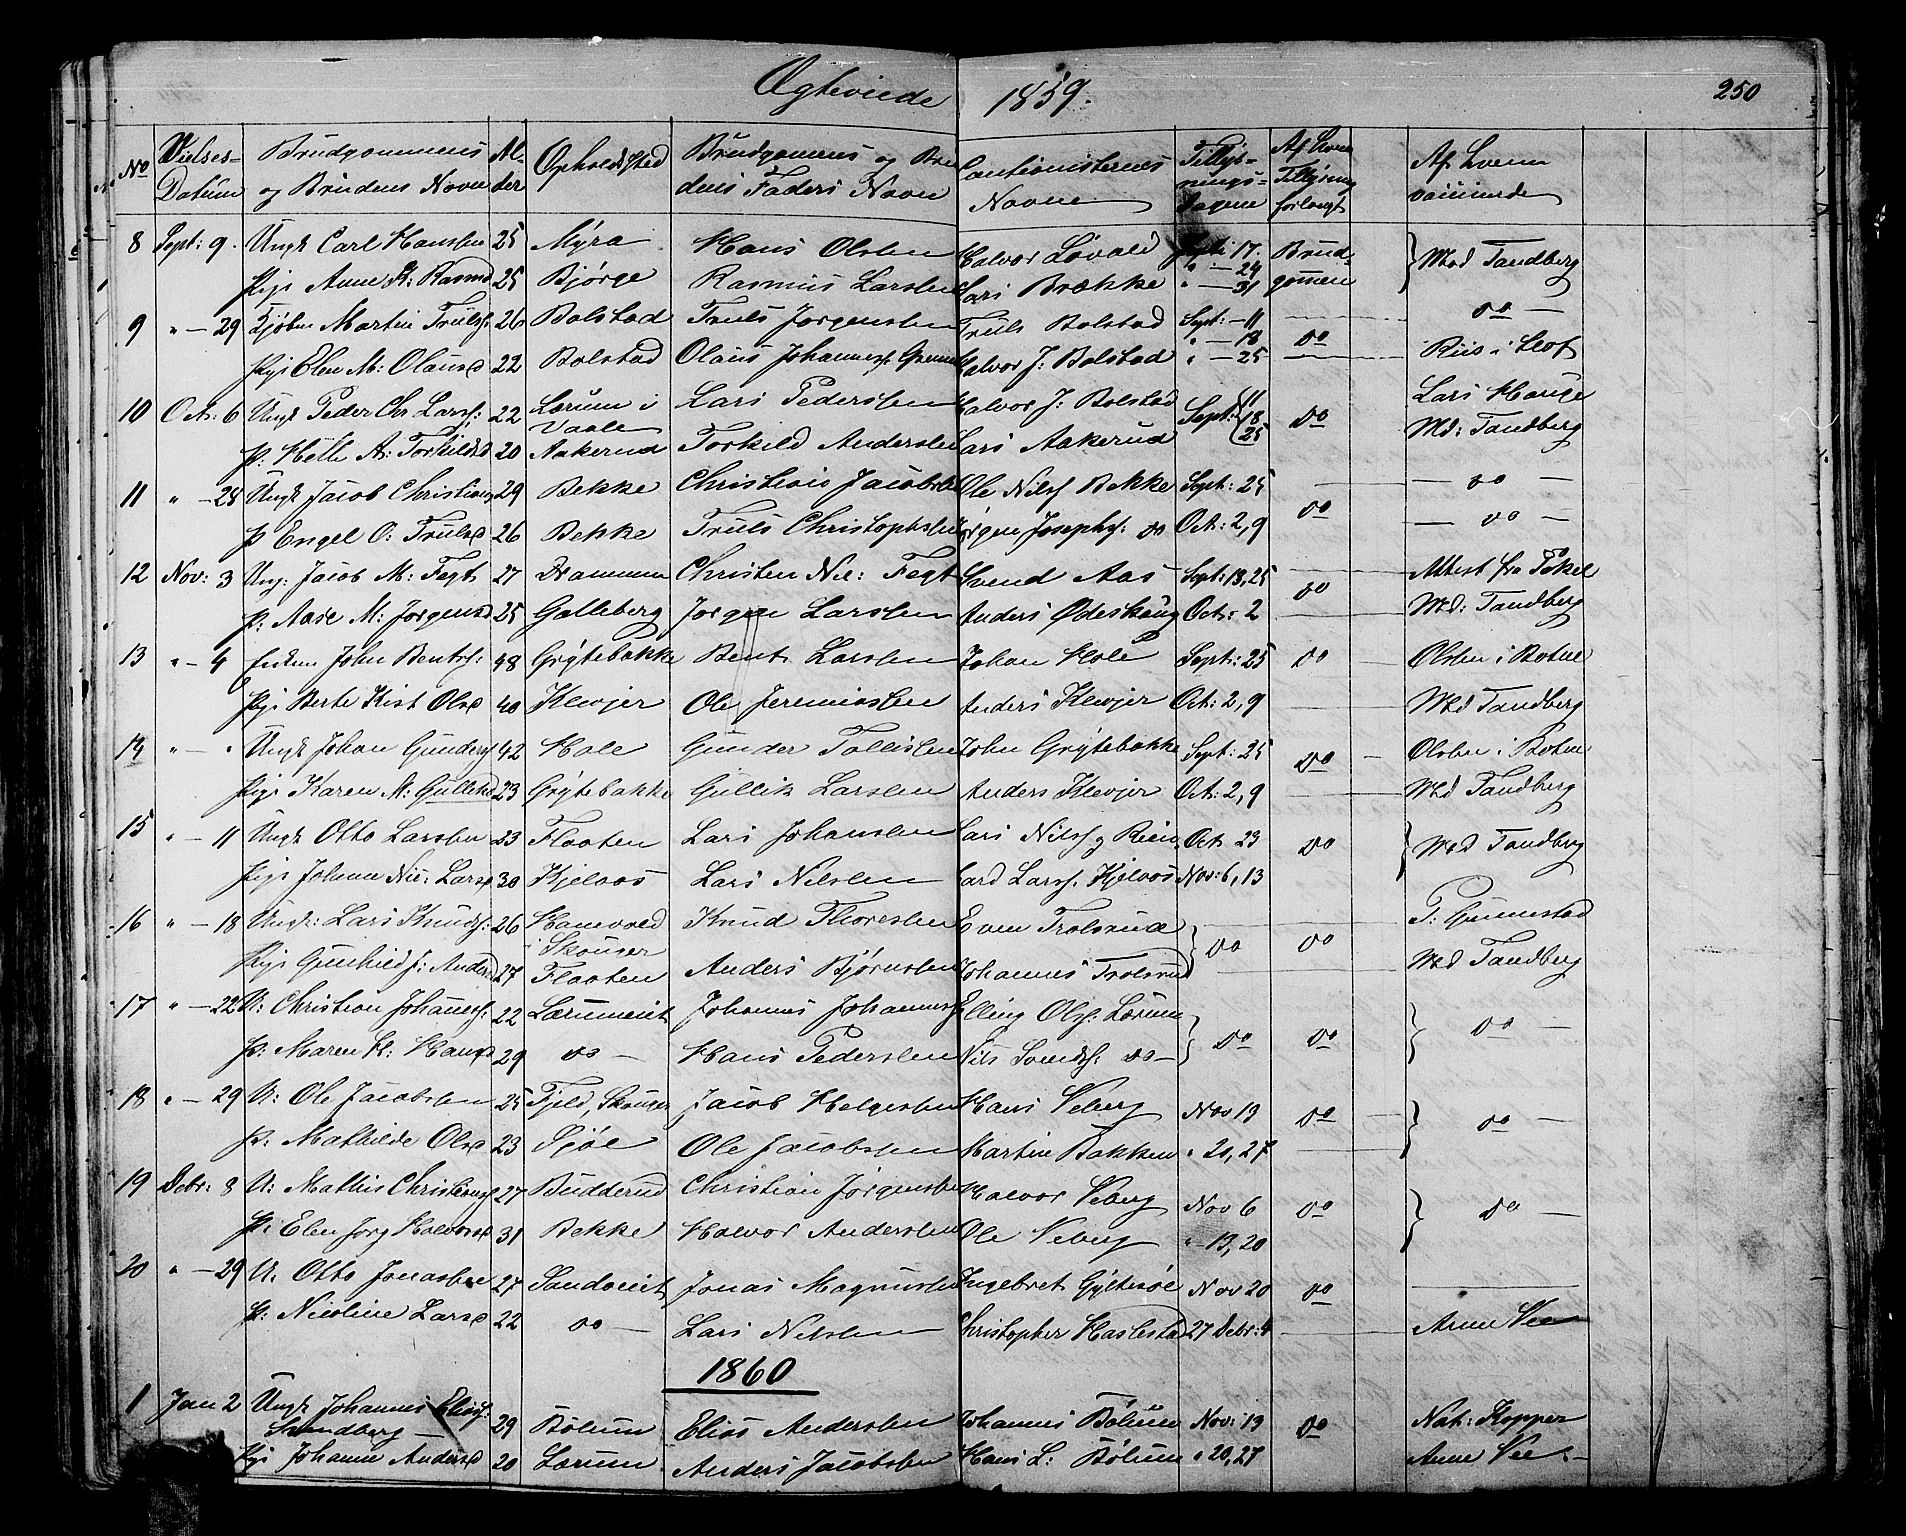 Ægteviede 1859. 250
No Vielses- Datum Brudgommens og Brudens Navn Al- der Opholdssted Brudgomens og Bru dens Faders Navn Cautionisternes Navne Tillys- nings- dagene Af hvem Tillysning forlangt Af hvem vaccinerede
8 Sept: 9. Ungk Carl Hanssen 25 Myra Hans Olsen Halvor Løvald Septi 17. Brud- Med Tandberg
Pige Anne K: Rasmd 25 Bjørge Rasmus Larssen Lars Brække " — 24 " — 31 gomen
9 " — 29 Martin Trulss: 26 Bolstad Truls Jørgenssen Truls Bolstad Sept: — 11 " — 18 do do —
Pige Elen M: Olausd 22 Bolstad Olaus Johanness: Halvor J: Bolstad " — 25 Riis i Hof
10 Oct: 6 Ungk Peder Chr Larss: 22 Lærum i Vaale Lars Pederssen Halvor J: Bolstad Sept: 11 18 25 do Lars Hauge
P: Helle A: Torkildsd 20 Aakerud Torkild Anderssen Lars Aakerud Md: Tandberg
11 " — 28 Ungk Jacob Christians 29 Bekke Christian Jacobssen Ole Nilss Bekke Sept: 25 do — do —
P Engel O: Trulsd 26 Bekke Truls Christophssen Jørgen Josephs: do Oct: 2, 9 — do —
12 Nov: 3 Ung: Jacob M: Fegt 27 Drammen Christen Nic: Fegt Svend Aas Sept: 18, 25 do Attest fra
P: Aase M: Jørgensd 25 Galleberg Jørgen Larssen Anders Ødeskaug Oct: 2 Md: Tandberg
13 " — 4 Enkem John Bentss: 48 Grytebakke Bent Larssen Johan Hole Sept: 25 do Olsen i Botne
Pige Berte Kirst Olsd 40 Klevjer Ole Jeremiassen Anders Klevjer Oct: 2, 9 Md Tandberg
14 " — " Ungk Johan Gunders 42 Hole Gunder Tollissen John Grytebakke Sept: 25 do Olsen i Botne
Pige Karen M: Gulleksd 23 Grytebakke Gullik Larssen Anders Klevjer Oct: 2, 9 Md Tandberg
15 " — 11 Ungk Otto Larssen 23 Flaaten Lars Johanssen Lars Nilss Oct 23 do Med Tandberg
Pige Johanne Nic: Larsd 30 Kjelaas Lars Nilssen Larss: Kjelaas Nov: 6, 13
16 " — 18 Ungk: Lars Knuds: 26 Hanevold i Skouger Knud Thoressen Even Trolsrud do do P: Gunnestad
Pige Gunhild Anders 27 Flaaten Anders Bjørnssen Johannes Trolsrud Md Tandberg
17 " — 22 U: Christian Johanness: 22 Lærumeiet Johannes Johanness Elling Ols: Lærum do do do —
P: Maren K: Hansd 29 do — Hans Pederssen Nils Svends: do —
18 " — 29 U: Ole Jacobssen 25 Fjeld, Skouger Jacob Helgessen Hans Veberg Nov 13 do do —
P: Mathilde Olsd 23 Sjøe Ole Jacobssen Martin Bakken " 20, 27
19 Debr: 8 U: Mathis Christians 27 Budderud Christian Jørgenssen Halvor Veberg Nov 6 do do —
P: Elen Jørg Halvorsd 31 Bekke Halvor Anderssen Ole Veberg " 13, 20
20 " — 29 U. Otto Jonassen 27 Sandeeiet Jonas Magnussen Ingebret Gyltesøe Nov 20 do
P: Nicoline Larsd 22 do — Lars Nilssen Christopher Haslestad 27 Debr: 4 Arne Vee
1860
1 Jan 2 Ungk Johannes Eliass: Sundberg — 29 Bølum Elias Anderssen Johannes Bølum Nov: 13 do Nat: Kopper
Pige Johanne Andersd 20 Lærum Anders Jacobssen Hans L: Bølum " 20, 27 Arne Vee